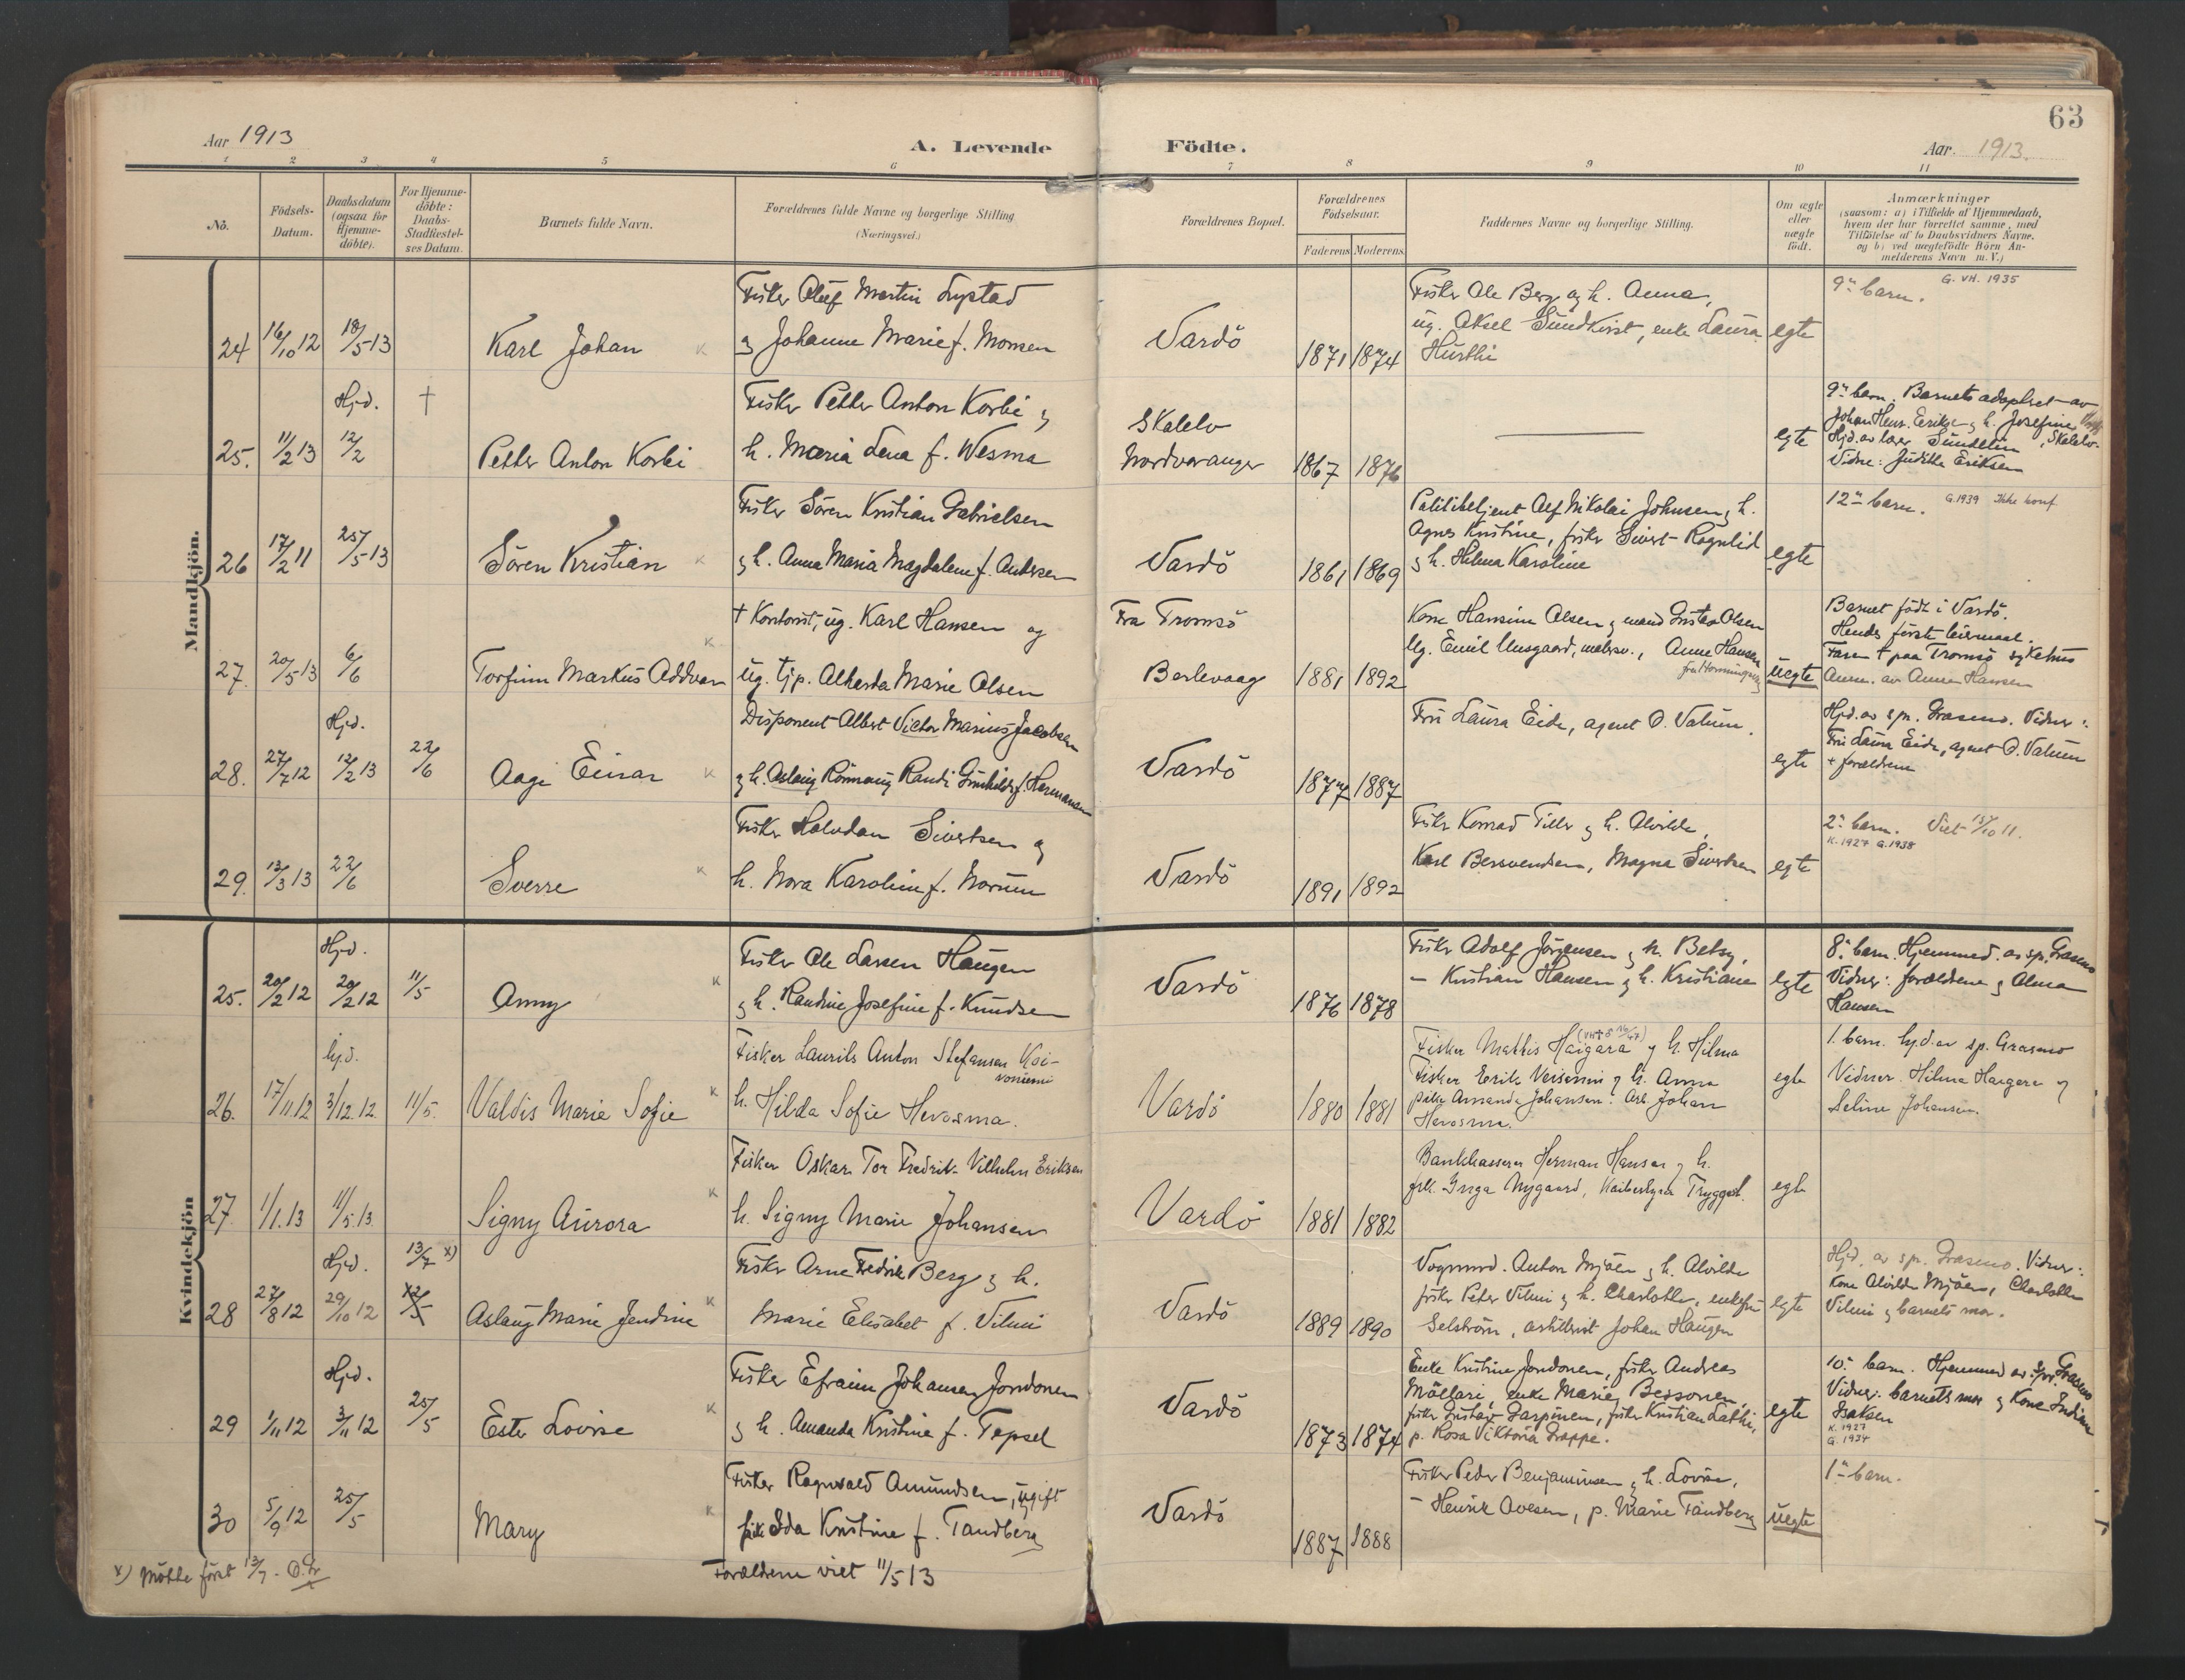 63
Aar 1913
A. Levende Födte.
Aar. 1913.
1 2 3 4 5 6 7 8 9 10 11
No.
Födsels-
Datum.
Daabsdatum
(ogsaa for
Hjemme-
döbte).
For Hjemme-
döbte:
Daabs-
Stadfæstel-
ses Datum.
Barnets fulde Navn.
Forældrenes fulde Navne og borgerlige Stilling
(Næringsvei.)
Forældrenes Bopæl.
Forældrenes
Födselsaar.
Faderens Moderens
Faddernes Navne og borgerlige Stilling.
Om ægte
eller
uægte
født.
Anmærkninger
(saasom: a) i Tilfælde af Hjemmedaab,
hvem der har forrettet samme, med
Tilföielse af to Daabsvidners Navne.
og b) ved uægtefödte Börn An-
melderens Navn m. V.)
Mandkjön.
Fisker Oluf Martin Lystad
24 16/10 12 18/5 13 Karl Johan
og Johanne Marie f. Monsen
Vardö
1871 1874
Fisker Ole Berg og h. Anna,
ug. Aksel Sundkvist, enke Laura
egte
9de barn. G. VH. 1935
Hjd. †
25. 11/2 13 12/2
Petter Anton Korbi
Fisker Petter Anton Korbi og
h. Maria Lena f. Wesma
Skalelv
Nordvaranger
1867 1876
egte
9de barn. Barnet adoptert av
Johan Henr. Eriksen og h. Josefine
Hjd. av lærer Sundelin, Skalelv.
Vidne: Judithe Eriksen
26 17/2 11 25/5 13
Sören Kristian
Fisker Sören Kristian Gabrielsen
og h. Anna Maria Magdalene f. Andersen
Vardö
1861 1869
Politibetjent Alf Nikolai Johnsen og h.
Agnes Kristine, fisker Sivert Rognlid
og h. Helma Karoline
egte
12te barn. G. 1939 Ikke konf
27. 20/5 13 6/6
Torfinn Markus Addvar
† Kontorist, ug. Karl Hansen og
ug. tjp. Alberta Marie Olsen
Fra Tromsö
Berlevaag
1881 1892
Kone Hansine Olsen og mand Gustav Olsen
Ug. Emil Unsgaard, Anne Hansen
fra Honningsvaag
uegte
Barnet født i Vardö.
Hendes förste leiermaal.
Faren † paa Tromsö sykehus
Anm. av Anna Hansen
Hjd.
28. 27/7 12 12/2 13 22/6
Aage Einar
Disponent Albert Victor Marius Jacobsen
og h. Aslaug Rönnaug Randi Gunhild f. Hermansen
Vardö
1877 1887
Fru Laura Eide, agent O. Valum.
egte
Hjd. av spr. Grasmo. Vidner:
Fru Laura Eide, agent O. Valum
+ forældrene
29. 13/3 13 22/6
Sverre
Fisker Halvdan Sivertsen og
h. Nora Karoline f. Norum
Vardö
1891 1892
Fisker Konrad Tiller og h. Alvilde,
Karl Bersvendsen, Magna Sivertsen
egte
2det barn. Viet 15/10 11.
K. 1927 G. 1938
Kvindekjön
Hjd.
25. 20/2 12 20/2 12 11/5
Anny
Fisker Ole Larsen Haugen
og h. Handine Josefine f. Knudsen
Vardö
1876 1878
Fisker Adolf Jörgensen og h. Betsy,
— Kristian Hansen og h. Kristiane
egte
8de barn. Hjemmed. av sp. Grasmo
Vidner: forældrene og Alma
Hansen
hj.d.
26. 17/11.12 3/12.12. 11/5.
Valdis Marie Sofie
Fisker Laurits Anton Stefansen Koi-
voniemi
h. Hilda Sofie Hervasma.
Vardö
1880 1881
Fisker Mathis Haigara og h. Hilma
Fisker Erik Veisenen og h. Anna
pike Amanda Johansen. Arb. Johan
egte
1. barn. hj.d. av sp. Grasmo
Vidner. Hilma Haigara og
Seline Johansen.
27. 1/1.13 11/5.13.
Signy Aurora
Fisker Oskar Tor Fredrik Vilhelm Eriksen
h. Signy Marie Johansen
Vardö
1881 1882
Bankkasserer Herman Hansen og h.
frk. Inga Nygaard,
egte
Hjd. 13/7 x)
28 27/8 12 29/10 12
Aslaug Marie Jendine
Fisker Arne Fredrik Berg og h.
Marie Elisabet f. Vilmi
Vardö
1889 1890
Vognmd. Anton Mjöen og h. Alvilde
fisker Peter Vilmi og h. Charlotte, enkefru
Selström, artillerist Johan Haugen
egte
Hjd. av spr. Grasmo. Vidner:
Kone Alvilde Mjöen, Charlotte
Vilmi og barnets mor.
Hjd.
29 1/11 12 3/11 12 25/5
Ester Lovise
Fisker Efraim Johansen Jondonen
og h. Amanda Kristine f. Tepsel
Vardö
1873 1874
Enke Kristine Jondonen, fisker Andreas
Möllari, enke Marie Bessonen,
fisker Gustav Zarpinen, fisker Kristian Lathi,
p. Rosa Viktoria Grappe.
egte
10de barn. Hjemmed av spr. Grasmo
Vidner: barnets mor og Kone Indiane
Isaksen
K. 1927
G. 1934
30 5/9 12 25/5
Mary
Fisker Ragnvald Amundsen, ugift
pike Ida Kristine f. Tandberg
Vardö
1887 1888
Fisker Peder Benjaminsen og h. Lovise,
— Henrik Ovesen, p. Marie Tandberg
uegte
1ste barn.
x) Mötte först 13/7 -
Forældrene viet 11/5 13